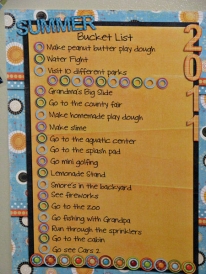 SUMMER
2011
Bucket List
Make peanut butter play dough
Water Fight
Visit 10 different parks
Grandma's Big Slide
Go to the county fair
Make homemade play dough
Make slime
Go to the aquatic center
Go to the splash pad
Go mini golfing
Lemonade Stand
Smore's in the backyard
See fireworks
Go to the zoo
Go fishing with Grandpa
Run through the sprinklers
Go to the cabin
Go see Cars 2